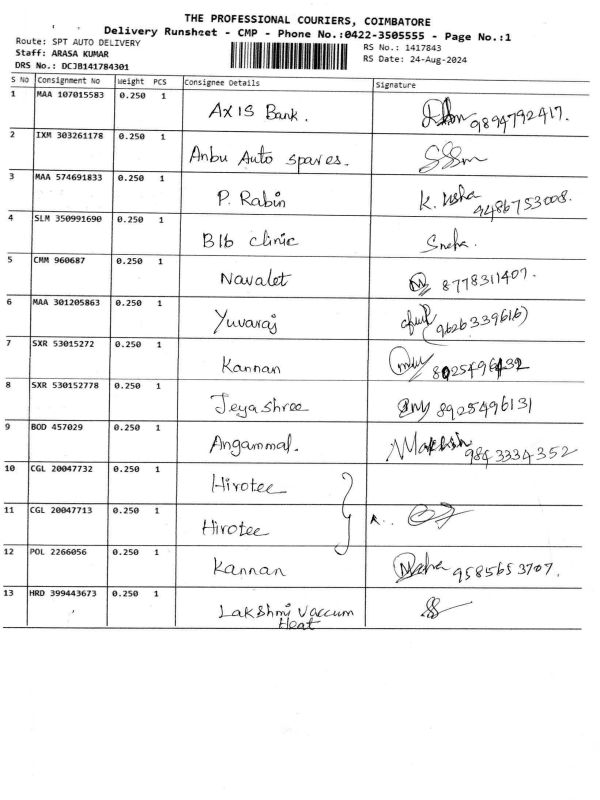 THE PROFESSIONAL COURIERS, COIMBATORE
Delivery Runsheet - CMP - Phone No.:0422-3505555 - Page No.:1
Route: SPT AUTO DELIVERY
RS No.: 1417843
Staff: ARASA KUMAR
RS Date: 24-Aug-2024
DRS No.: DCJB141784301
S No Consignment No Weight PCS Consignee Details Signature
1 MAA 107015583 0.250 1 Axis Bank. 9894792417.
2 IXM 303261178 0.250 1 Anbu Auto spares.
3 MAA 574691833 0.250 1 P. Rabin K. Usha
9486753008.
4 SLM 350991690 0.250 1 B1b clinic Sneha.
5 CMM 960687 0.250 1 Navalet 8778311407.
6 MAA 301205863 0.250 1 Yuvaraj 9626339616)
7 SXR 53015272 0.250 1 Kannan
8 SXR 530152778 0.250 1 Jeyashree 8925496131
9 BOD 457029 0.250 1 Angammal. 9843334352
10 CGL 20047732 0.250 1 Hirotec
11 CGL 20047713 0.250 1 Hirotec
12 POL 2266056 0.250 1 Kannan 9585653707.
13 HRD 399443673 0.250 1 Lakshmi Vaccum
Heat